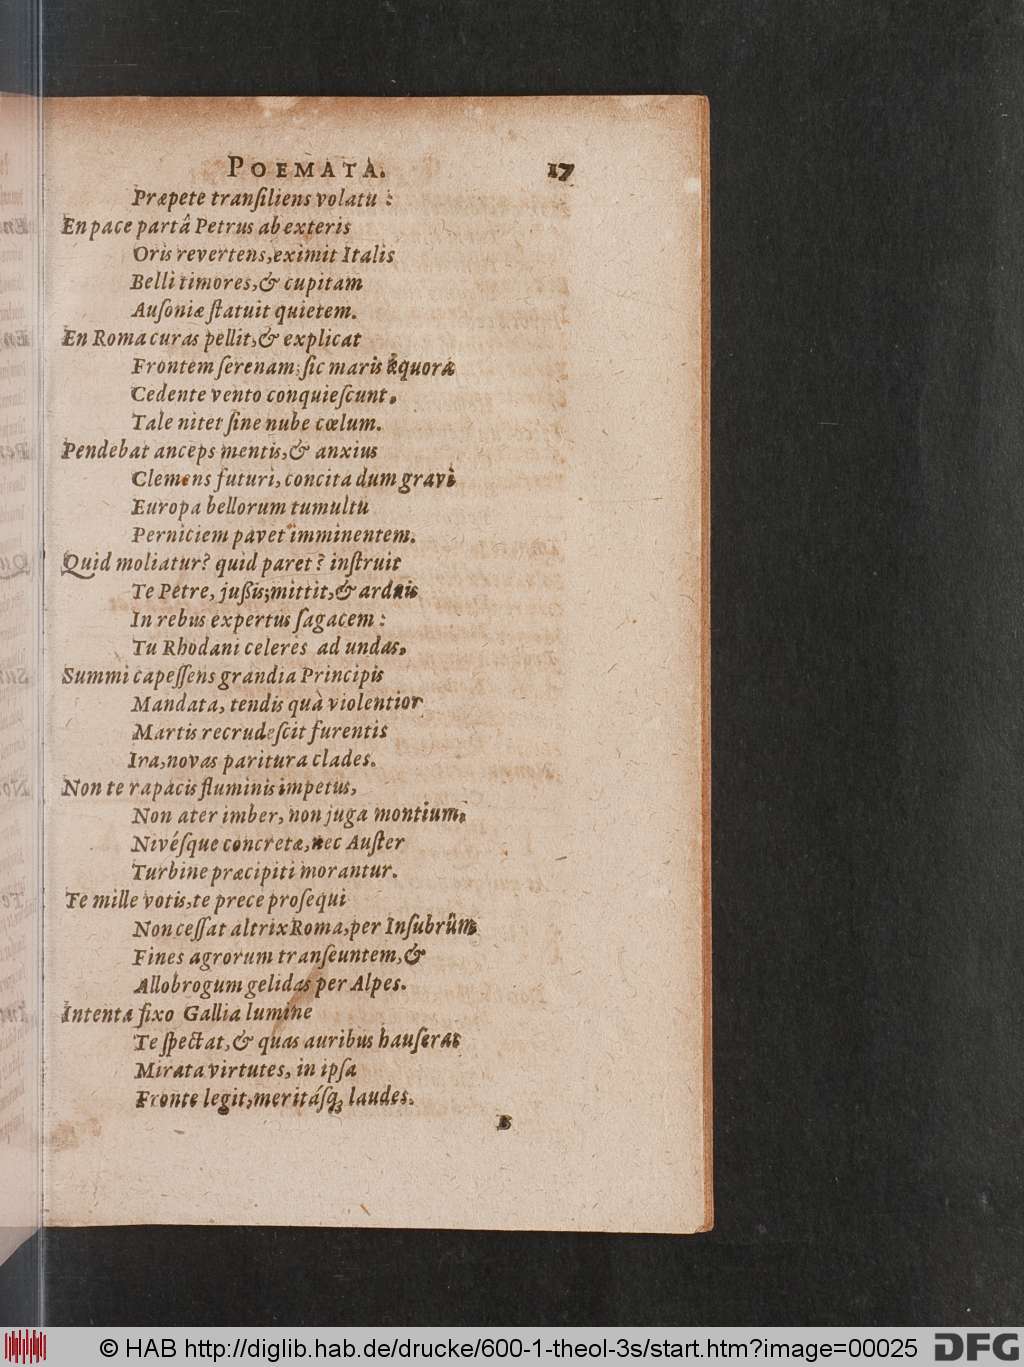 POEMATA. 17
Præpete tranſiliens volatu :
En pace partâ Petrus ab exteris
Oris revertens, eximit Italis
Belli timores, & cupitam
Auſoniæ ſtatuit quietem.
En Roma curas pellit, & explicat
Frontem ſerenam; ſic maris æquora
Cedente vento conquieſcunt.
Tale nitet ſine nube cœlum.
Pendebat anceps mentis, & anxius
Clemens futuri, concita dum gravi
Europa bellorum tumultu
Perniciem pavet imminentem.
Quid moliatur? quid paret? inſtruit
Te Petre, jußis; mittit, & arduis
In rebus expertus ſagacem :
Tu Rhodani celeres ad undas.
Summi capeſſens grandia Principis
Mandata, tendis quà violentior
Martis recrudeſcit furentis
Ira, novas paritura clades.
Non te rapacis fluminis impetus,
Non ater imber, non juga montium;
Nivéſque concretæ, nec Auſter
Turbine præcipiti morantur.
Te mille votis, te prece proſequi
Non ceſſat altrix Roma, per Inſubrûm
Fines agrorum tranſeuntem, &
Allobrogum gelidas per Alpes.
Intenta fixo Gallia lumine
Te ſpectat, & quas auribus hauſerat
Mirata virtutes, in ipſa
Fronte legit, meritáſq; laudes.
B
© HAB http://diglib.hab.de/drucke/600-1-theol-3s/start.htm?image=00025 DFG